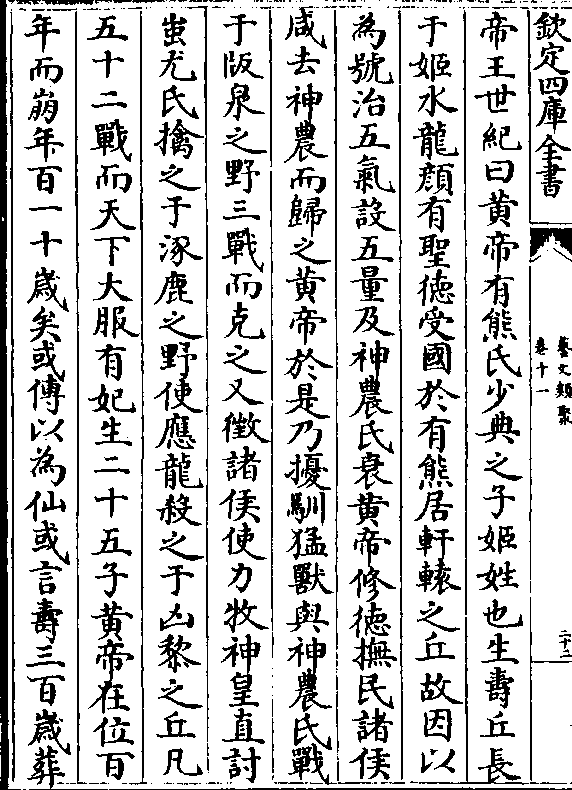 欽定四庫全書
藝文類聚
卷十一
二十二
帝王世紀曰黄帝有熊氏少典之子姬姓也生壽丘長
于姬水龍顔有聖德受國於有熊居軒轅之丘故因以
為號治五氣設五量及神農氏衰黄帝修德撫民諸侯
咸去神農而歸之黄帝於是乃擾馴猛獸與神農氏戰
于阪泉之野三戰而克之又徵諸侯使力牧神皇直討
蚩尤氏擒之于涿鹿之野使應龍殺之于凶黎之丘凡
五十二戰而天下大服有妃生二十五子黄帝在位百
年而崩年百一十歲矣或傳以為仙或言壽三百歲葬